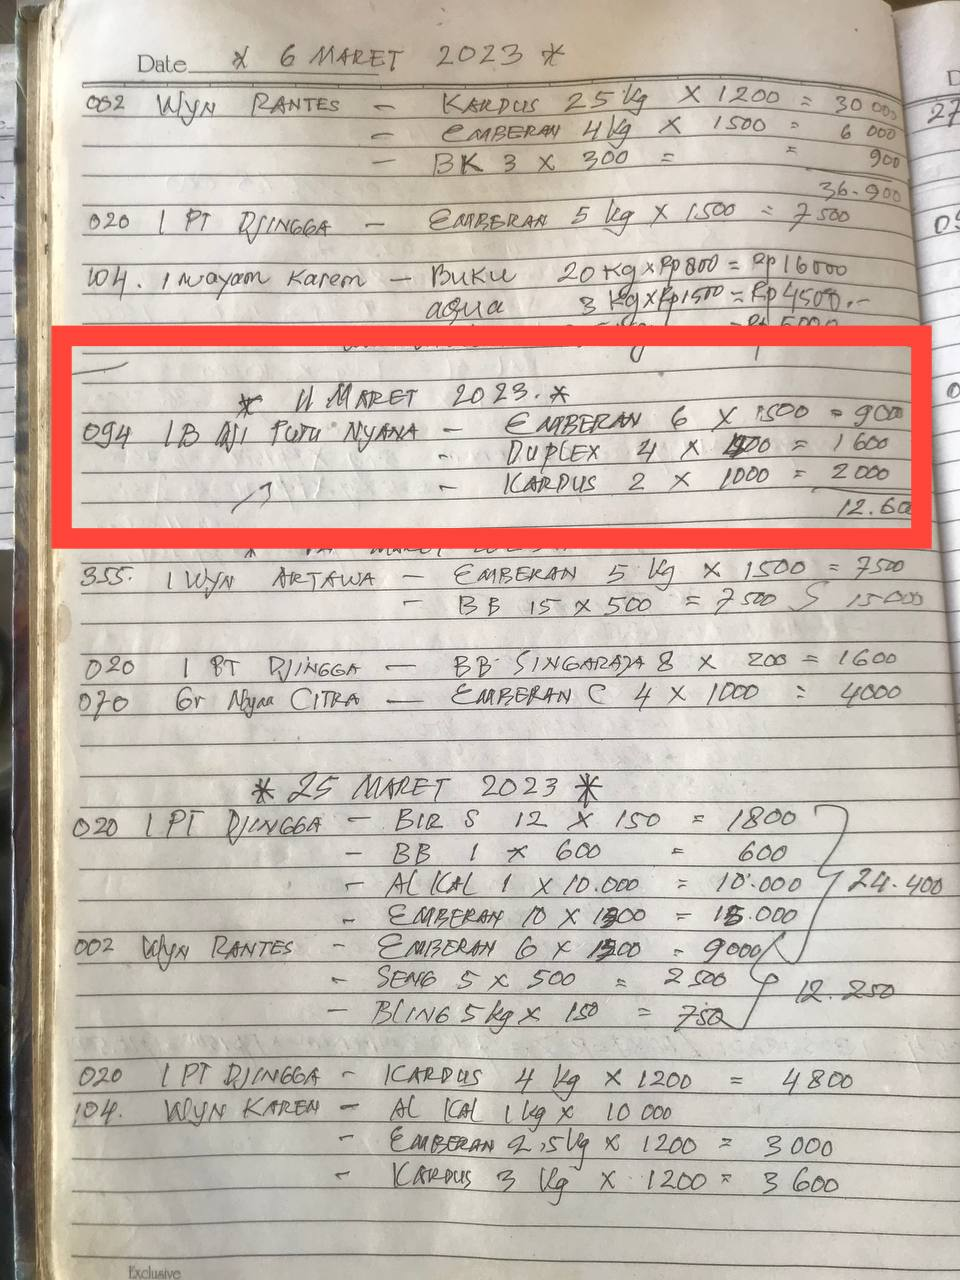 Date * 6 MARET 2023 *
002 WYN RANTES - KARDUS 25 kg X 1200 = 30 000
- EMBERAN 4 kg X 1500 = 6 000
- BK 3 X 300 = = 900
36.900
020 I PT DJINGGA - EMBERAN 5 kg X 1500 = 7 500
104. I wayam Karem - BUKU 20 Kg x Rp 800 = Rp 16000
aqua 3 Kg x Rp 1500 = Rp 4500.-
* 11 MARET 2023. *
094 IB AJI PUTU NYANA - EMBERAN 6 X 1500 = 9000
- DUPLEX 4 X 400 = 1 600
- KARDUS 2 X 1000 = 2 000
12.60
355. I WYN ARTAWA - EMBERAN 5 kg X 1500 = 7500
- BB 15 X 500 = 7 500 15 000
020 I PT DJINGGA - BB SINGARAJA 8 X 200 = 1600
070 Gr Nyaa CITRA - EMBERAN C 4 X 1000 = 4000
* 25 MARET 2023 *
020 I PT DJINGGA - BIR S 12 X 150 = 1800
- BB 1 X 600 = 600
- AL KAL 1 X 10.000 = 10.000 24.400
- EMBERAN 10 X 1500 = 15.000
002 WYN RANTES - EMBERAN 6 X 1500 = 9000
- SENG 5 X 500 = 2 500 12.250
- BLING 5 kg X 150 = 750
020 I PT DJINGGA - KARDUS 4 kg X 1200 = 4 800
104. WYN KAREN - AL KAL 1 kg X 10 000
- EMBERAN 2,5 kg X 1200 = 3 000
- KARDUS 3 kg X 1200 = 3 600
Exclusive